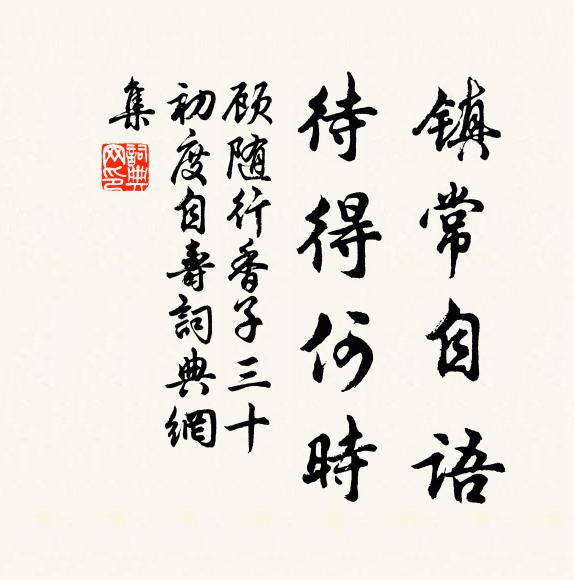 镇常自语
待得何時
顾随行香子三十
初度自壽詞典網
集
詞典
网印